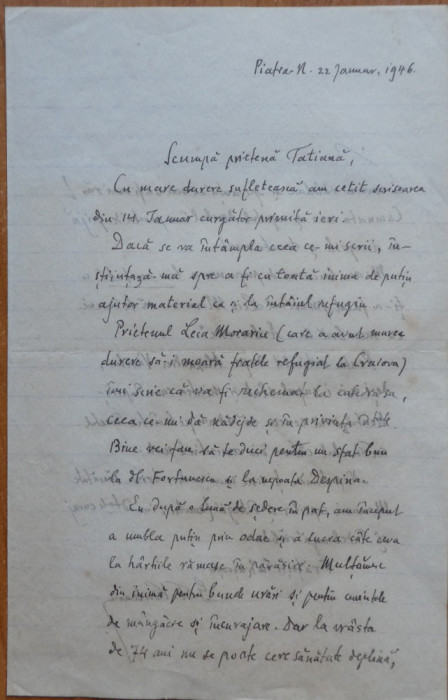 Piatra-N. 22 Januar, 1946.
Scumpă prietenă Tatiană,
Cu mare durere sufletească am cetit scrisoarea
din 14 Januar curgător primită ieri.
Dacă se va întâmpla ceea ce-mi scrii, în-
științază-mă spre a fi cu toată inima de puțin
ajutor material ca și la întâiul refugiu
Prietenul Leca Morariu (care a avut marea
durere să-i moară fratele refugiat la Craiova)
îmi scrie că va fi rechemat la catedra sa,
ceea ce-mi dă nădejde și în privința
Bine vei face să te duci pentru un sfat bun
la dl. Fortunescu și la nepoata Despina.
Eu după o lună de ședere în pat, am început
a umbla puțin prin odae și a lucra câte ceva
la hârtiile rămase în părăsire. Mulțămesc
din inimă pentru bunele urări și pentru cuvintele
de mângâere și încurajare. Dar la vrâsta
de 74 ani nu se poate cere sănătate deplină,